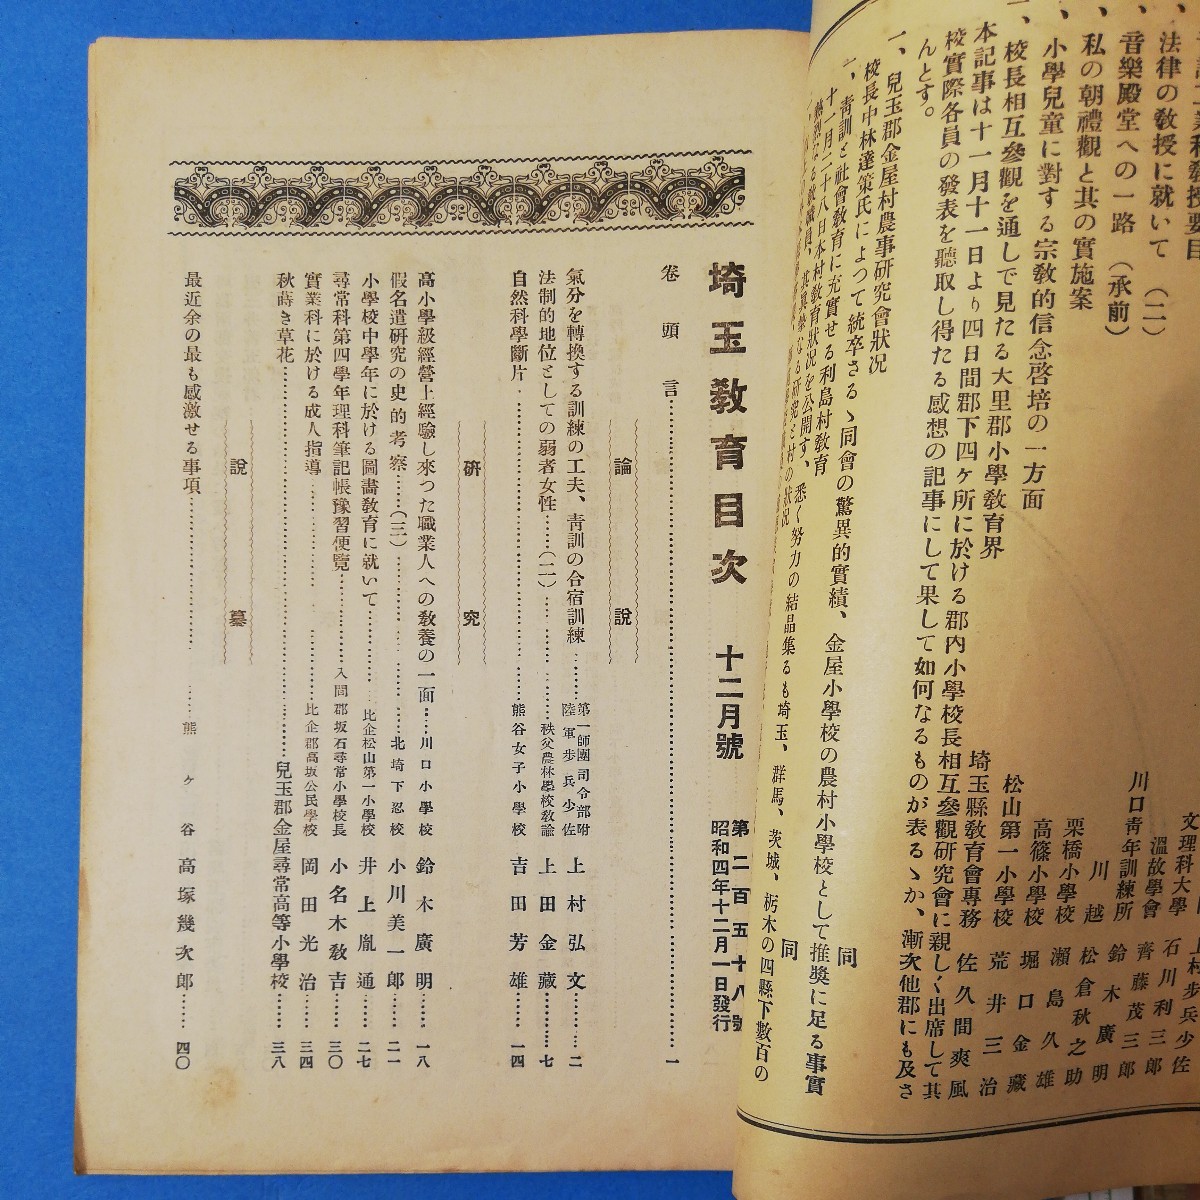 法律の敎授に就いて（二）
音樂殿堂への一路（承前）
私の朝禮觀と其の實施案
小學兒童に對する宗敎的信念啓培の一方面
一、校長相互參觀を通して見たる大里郡小學敎育界
文理科大學 石川利三郎
溫故學會 齊藤茂三郎
川口靑年訓練所 鈴木廣明
川越 松倉秋之助
栗橋小學校 瀨島久雄
高篠小學校 堀口金藏
松山第一小學校 荒井三治
埼玉縣敎育會專務 佐久間爽風
本記事は十一月十一日より四日間郡下四ヶ所に於ける郡內小學校長相互參觀硏究會に親しく出席して其
校實際各員の發表を聽取し得たる感想の記事にして果して如何なるものが表るゝか、漸次他郡にも及さ
んとす。
一、兒玉郡金屋村農事硏究會狀況 同
校長中林達策氏によつて統卒さるゝ同會の驚異的實績、金屋小學校の農村小學校として推奬に足る事實
一、靑訓と社會敎育に充實せる利島村敎育 同
十一月二十八日本村敎育狀況を公開す、悉く努力の結晶集るも埼玉、群馬、茨城、栃木の四縣下數百の
埼玉敎育目次 十二月號
第二百五十八號
昭和四年十二月一日發行
卷頭言……一
論說
氣分を轉換する訓練の工夫、靑訓の合宿訓練……第一師團司令部附陸軍步兵少佐 上村弘文……二
法制的地位としての弱者女性……（二）……秩父農林學校敎諭 上田金藏……七
自然科學斷片……熊谷女子小學校 吉田芳雄……一四
硏究
高小學級經營上經驗し來つた職業人への敎養の一面……川口小學校 鈴木廣明……一八
假名遣硏究の史的考察……（三）……北埼下忍校 小川美一郞……二一
小學校中學年に於ける圖畫敎育に就いて……比企松山第一小學校 井上胤通……二七
尋常科第四學年理科筆記帳豫習便覽……入間郡坂石尋常小學校長 小名木敎吉……三〇
實業科に於ける成人指導……比企郡高坂公民學校 岡田光治……三四
秋蒔き草花……兒玉郡金屋尋常高等小學校……三八
說叢
最近余の最も感激せる事項……熊ヶ谷 高塚幾次郞……四〇